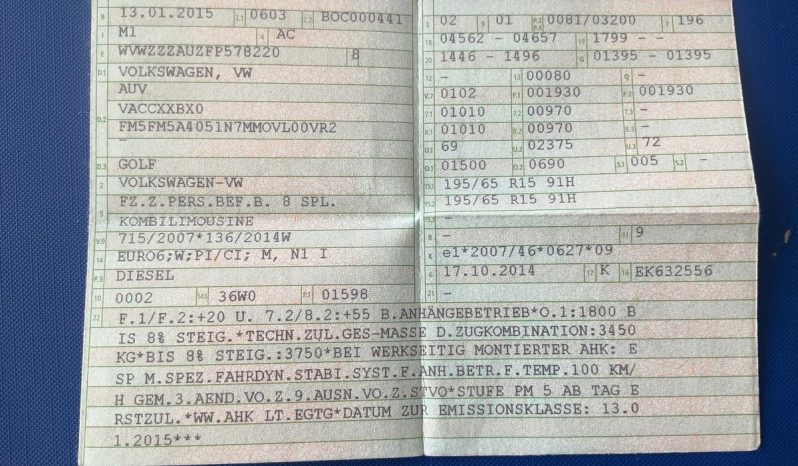 B 13.01.2015 2.1 0603 2.2 BOC000441
J M1 4 AC
E WVWZZZAUZFP578220 8
D.1 VOLKSWAGEN, VW
AUV
D.2 VACCXXBX0
FM5FM5A4051N7MMOVL00VR2
-
D.3 GOLF
2 VOLKSWAGEN-VW
5 FZ.Z.PERS.BEF.B. 8 SPL.
KOMBILIMOUSINE
V.9 715/2007*136/2014W
14 EURO6;W;PI/CI; M, N1 I
P.3 DIESEL
10 0002 14.1 36W0 P.1 01598
L 02 9 01 P.2/P.4 0081/03200 T 196
18 04562 - 04657 19 1799 - -
20 1446 - 1496 G 01395 - 01395
12 - 13 00080 Q -
V.7 0102 F.1 001930 F.2 001930
7.1 01010 7.2 00970 7.3 -
8.1 01010 8.2 00970 8.3 -
U.1 69 U.2 02375 U.3 72
O.1 01500 O.2 0690 S.1 005 S.2 -
15.1 195/65 R15 91H
15.2 195/65 R15 91H
15.3 -
R - 11 9
K e1*2007/46*0627*09
6 17.10.2014 17 K 16 EK632556
21 -
22 F.1/F.2:+20 U. 7.2/8.2:+55 B.ANHÄNGEBETRIEB*O.1:1800 B
IS 8% STEIG.*TECHN.ZUL.GES-MASSE D.ZUGKOMBINATION:3450
KG*BIS 8% STEIG.:3750*BEI WERKSEITIG MONTIERTER AHK: E
SP M.SPEZ.FAHRDYN.STABI.SYST.F.ANH.BETR.F.TEMP.100 KM/
H GEM.3.AEND.VO.Z.9.AUSN.VO.Z.STVO*STUFE PM 5 AB TAG E
RSTZUL.*WW.AHK LT.EGTG*DATUM ZUR EMISSIONSKLASSE: 13.0
1.2015***